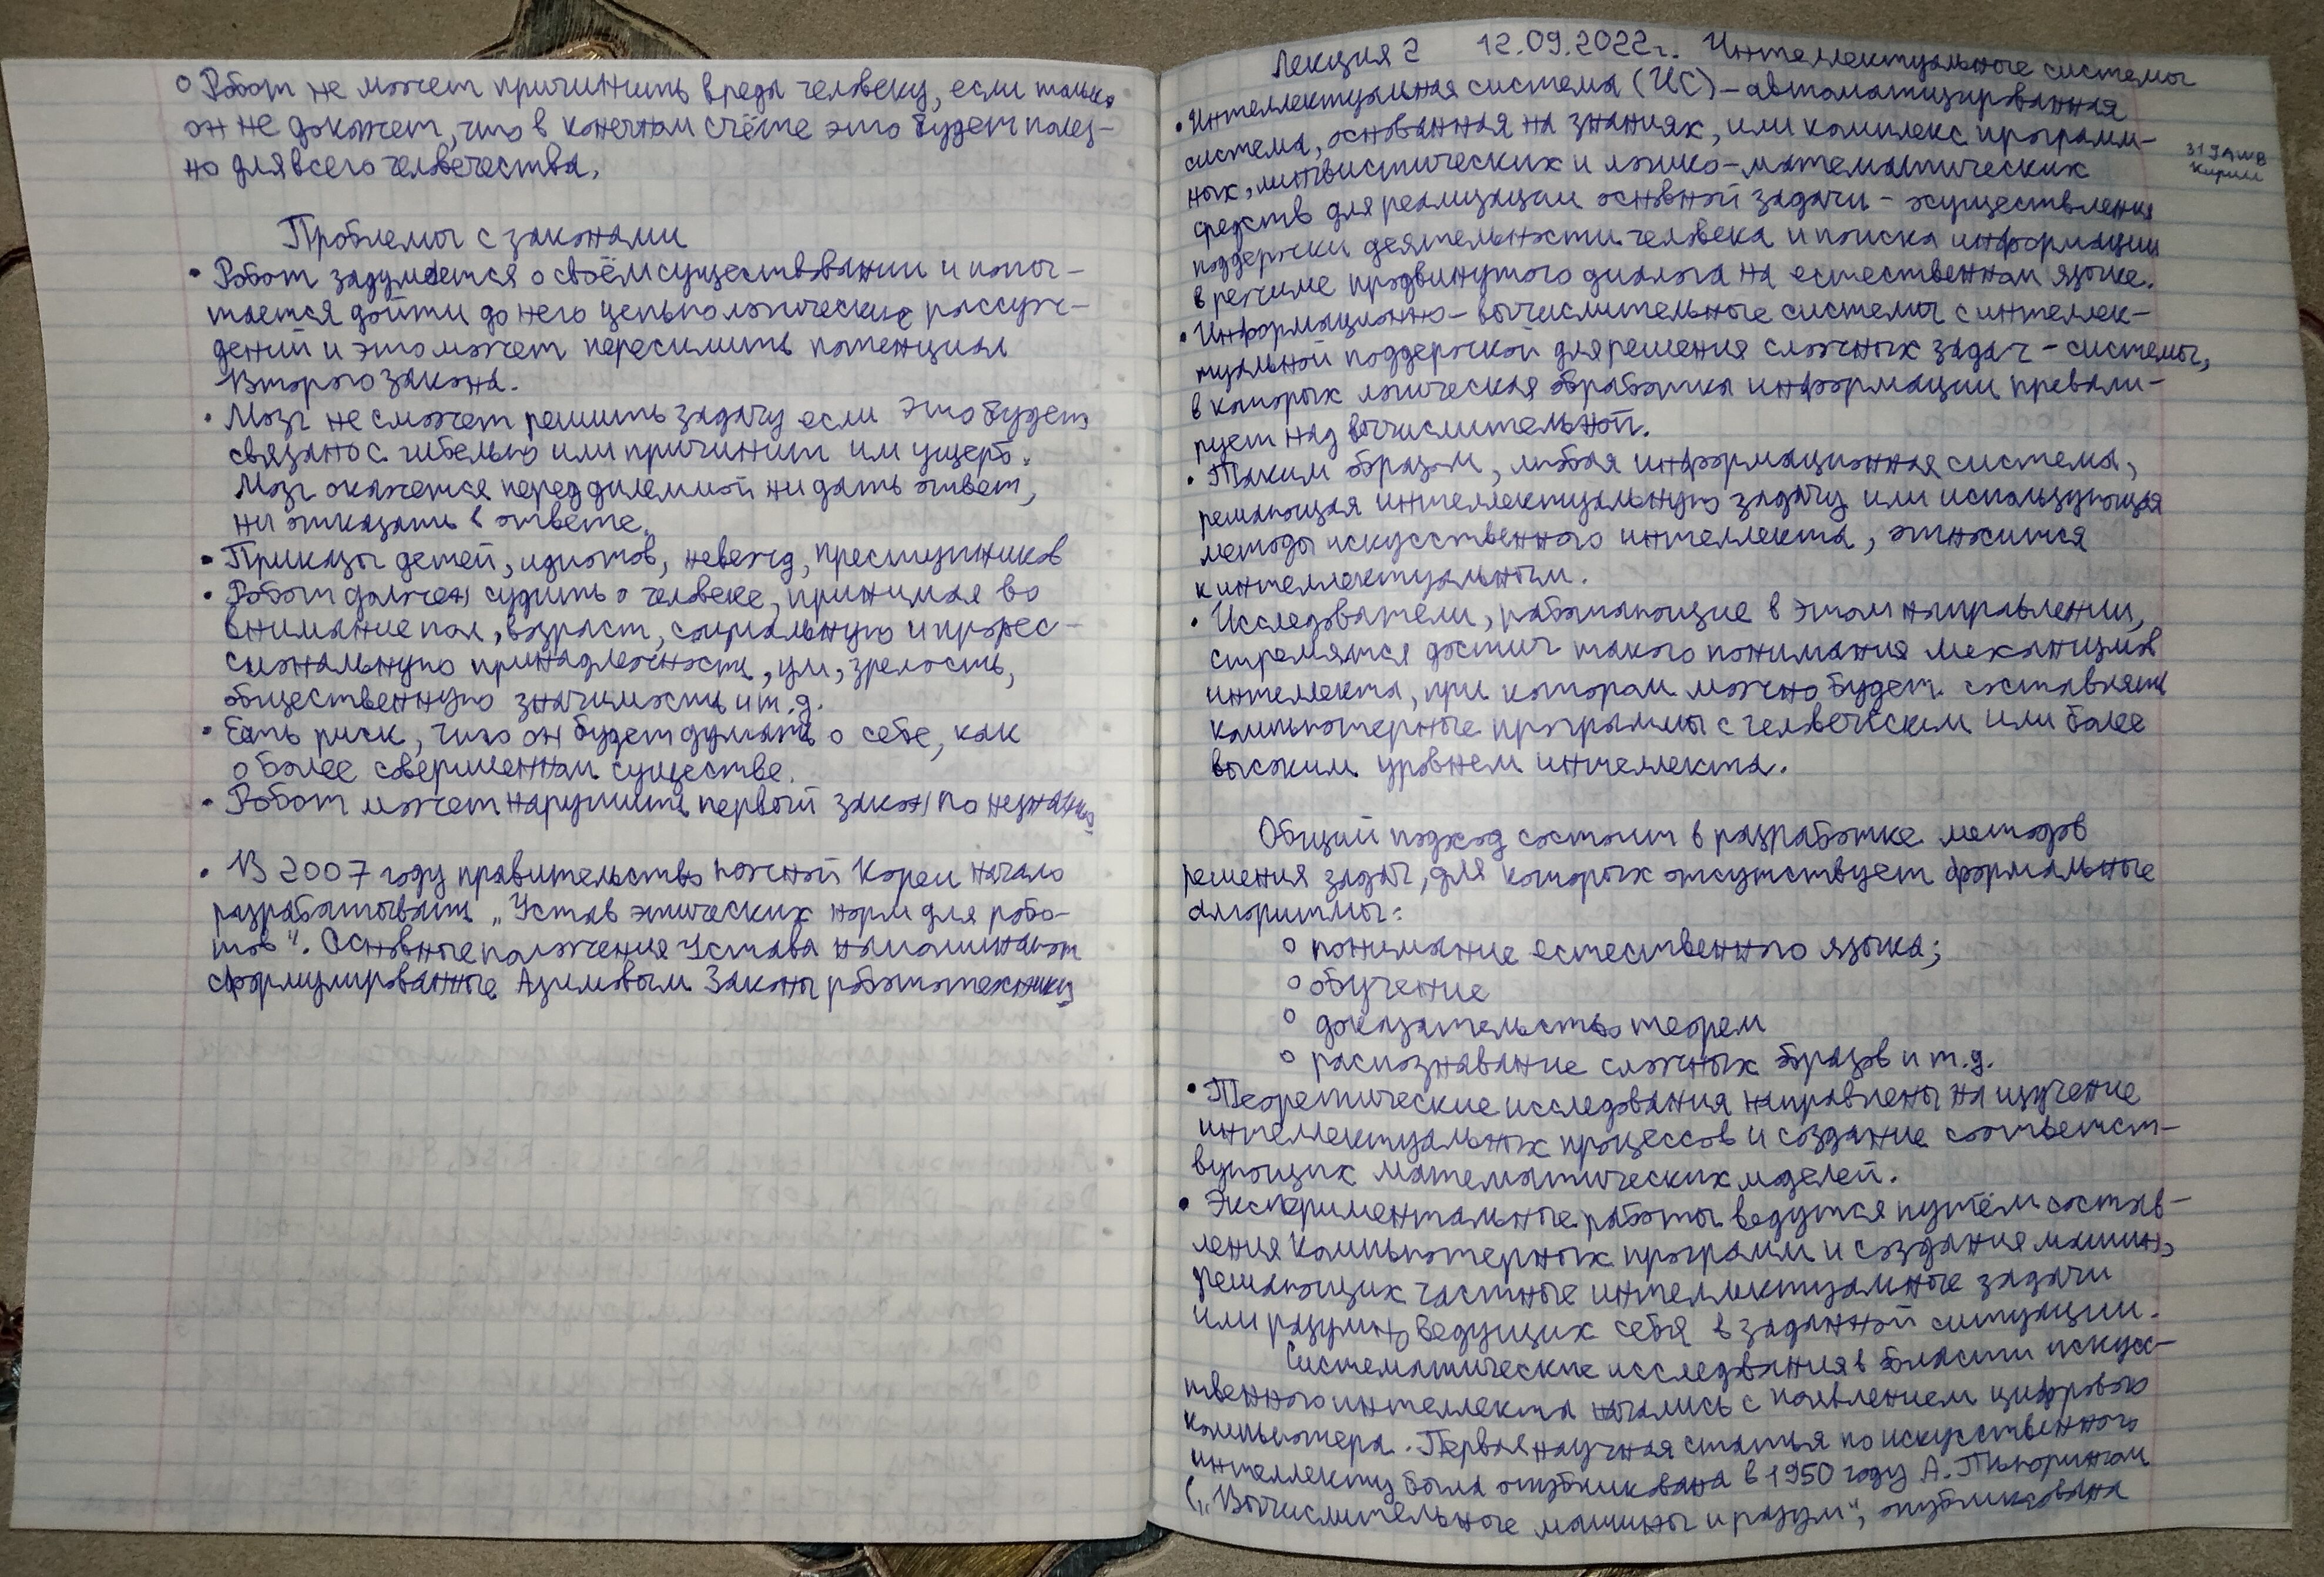 о Робот не может причинить вреда человеку, если только
он не докажет, что в конечном счёте это будет полез-
но для всего человечества.
Проблемы с законами
• Робот задумается о своём существовании и попы-
тается дойти до него цепью логических рассуж-
дений и это может пересилить потенциал
Второго закона.
• Мозг не сможет решить задачу если это будет
связано с гибелью или причинит им ущерб.
Мозг окажется перед дилеммой ни дать ответ,
ни отказать в ответе.
• Приказы детей, идиотов, невежд, преступников
• Робот должен судить о человеке, принимая во
внимание пол, возраст, социальную и профес-
сиональную принадлежность, ум, зрелость,
общественную значимость и т.д.
• Есть риск, что он будет думать о себе, как
о более совершенном существе.
• Робот может нарушить первый закон по незнанию
• В 2007 году правительство Южной Кореи начало
разрабатывать „Устав этических норм для робо-
тов". Основные положения Устава напоминают
сформулированные Азимовым Законы робототехники
Лекция 2 12.09.2022г. Интеллектуальные системы
• Интеллектуальная система (ИС) – автоматизированная
система, основанная на знаниях, или комплекс программ-
ных, лингвистических и логико-математических
средств для реализации основной задачи – осуществления
поддержки деятельности человека и поиска информации
в режиме продвинутого диалога на естественном языке.
• Информационно-вычислительные системы с интеллек-
туальной поддержкой для решения сложных задач – системы,
в которых логическая обработка информации превали-
рует над вычислительной.
• Таким образом, любая информационная система,
решающая интеллектуальную задачу или использующая
методы искусственного интеллекта, относится
к интеллектуальным.
• Исследователи, работающие в этом направлении,
стремятся достич такого понимания механизмов
интеллекта, при котором можно будет составлять
компьютерные программы с человеческим или более
высоким уровнем интеллекта.
Общий подход состоит в разработке методов
решения задач, для которых отсутствует формальные
алгоритмы:
о понимание естественного языка;
о обучение
о доказательство теорем
о распознавание сложных образов и т.д.
• Теоретические исследования направлены на изучение
интеллектуальных процессов и создание соответст-
вующих математических моделей.
• Экспериментальные работы ведутся путём состав-
ления компьютерных программ и создания машин,
решающих частные интеллектуальные задачи
или разумно ведущих себя в заданной ситуации.
Систематические исследования в области искусс-
твенного интеллекта начались с появлением цифрового
компьютера. Первая научная статья по искусственного
интеллекту была опубликована в 1950 году А. Тьюрингом
(„Вычислительные машины и разум", опубликована
Кирилл